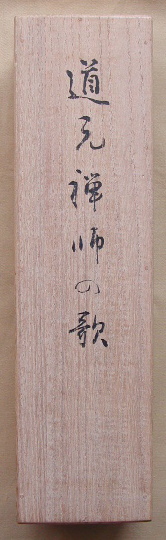 道元禅师の歌